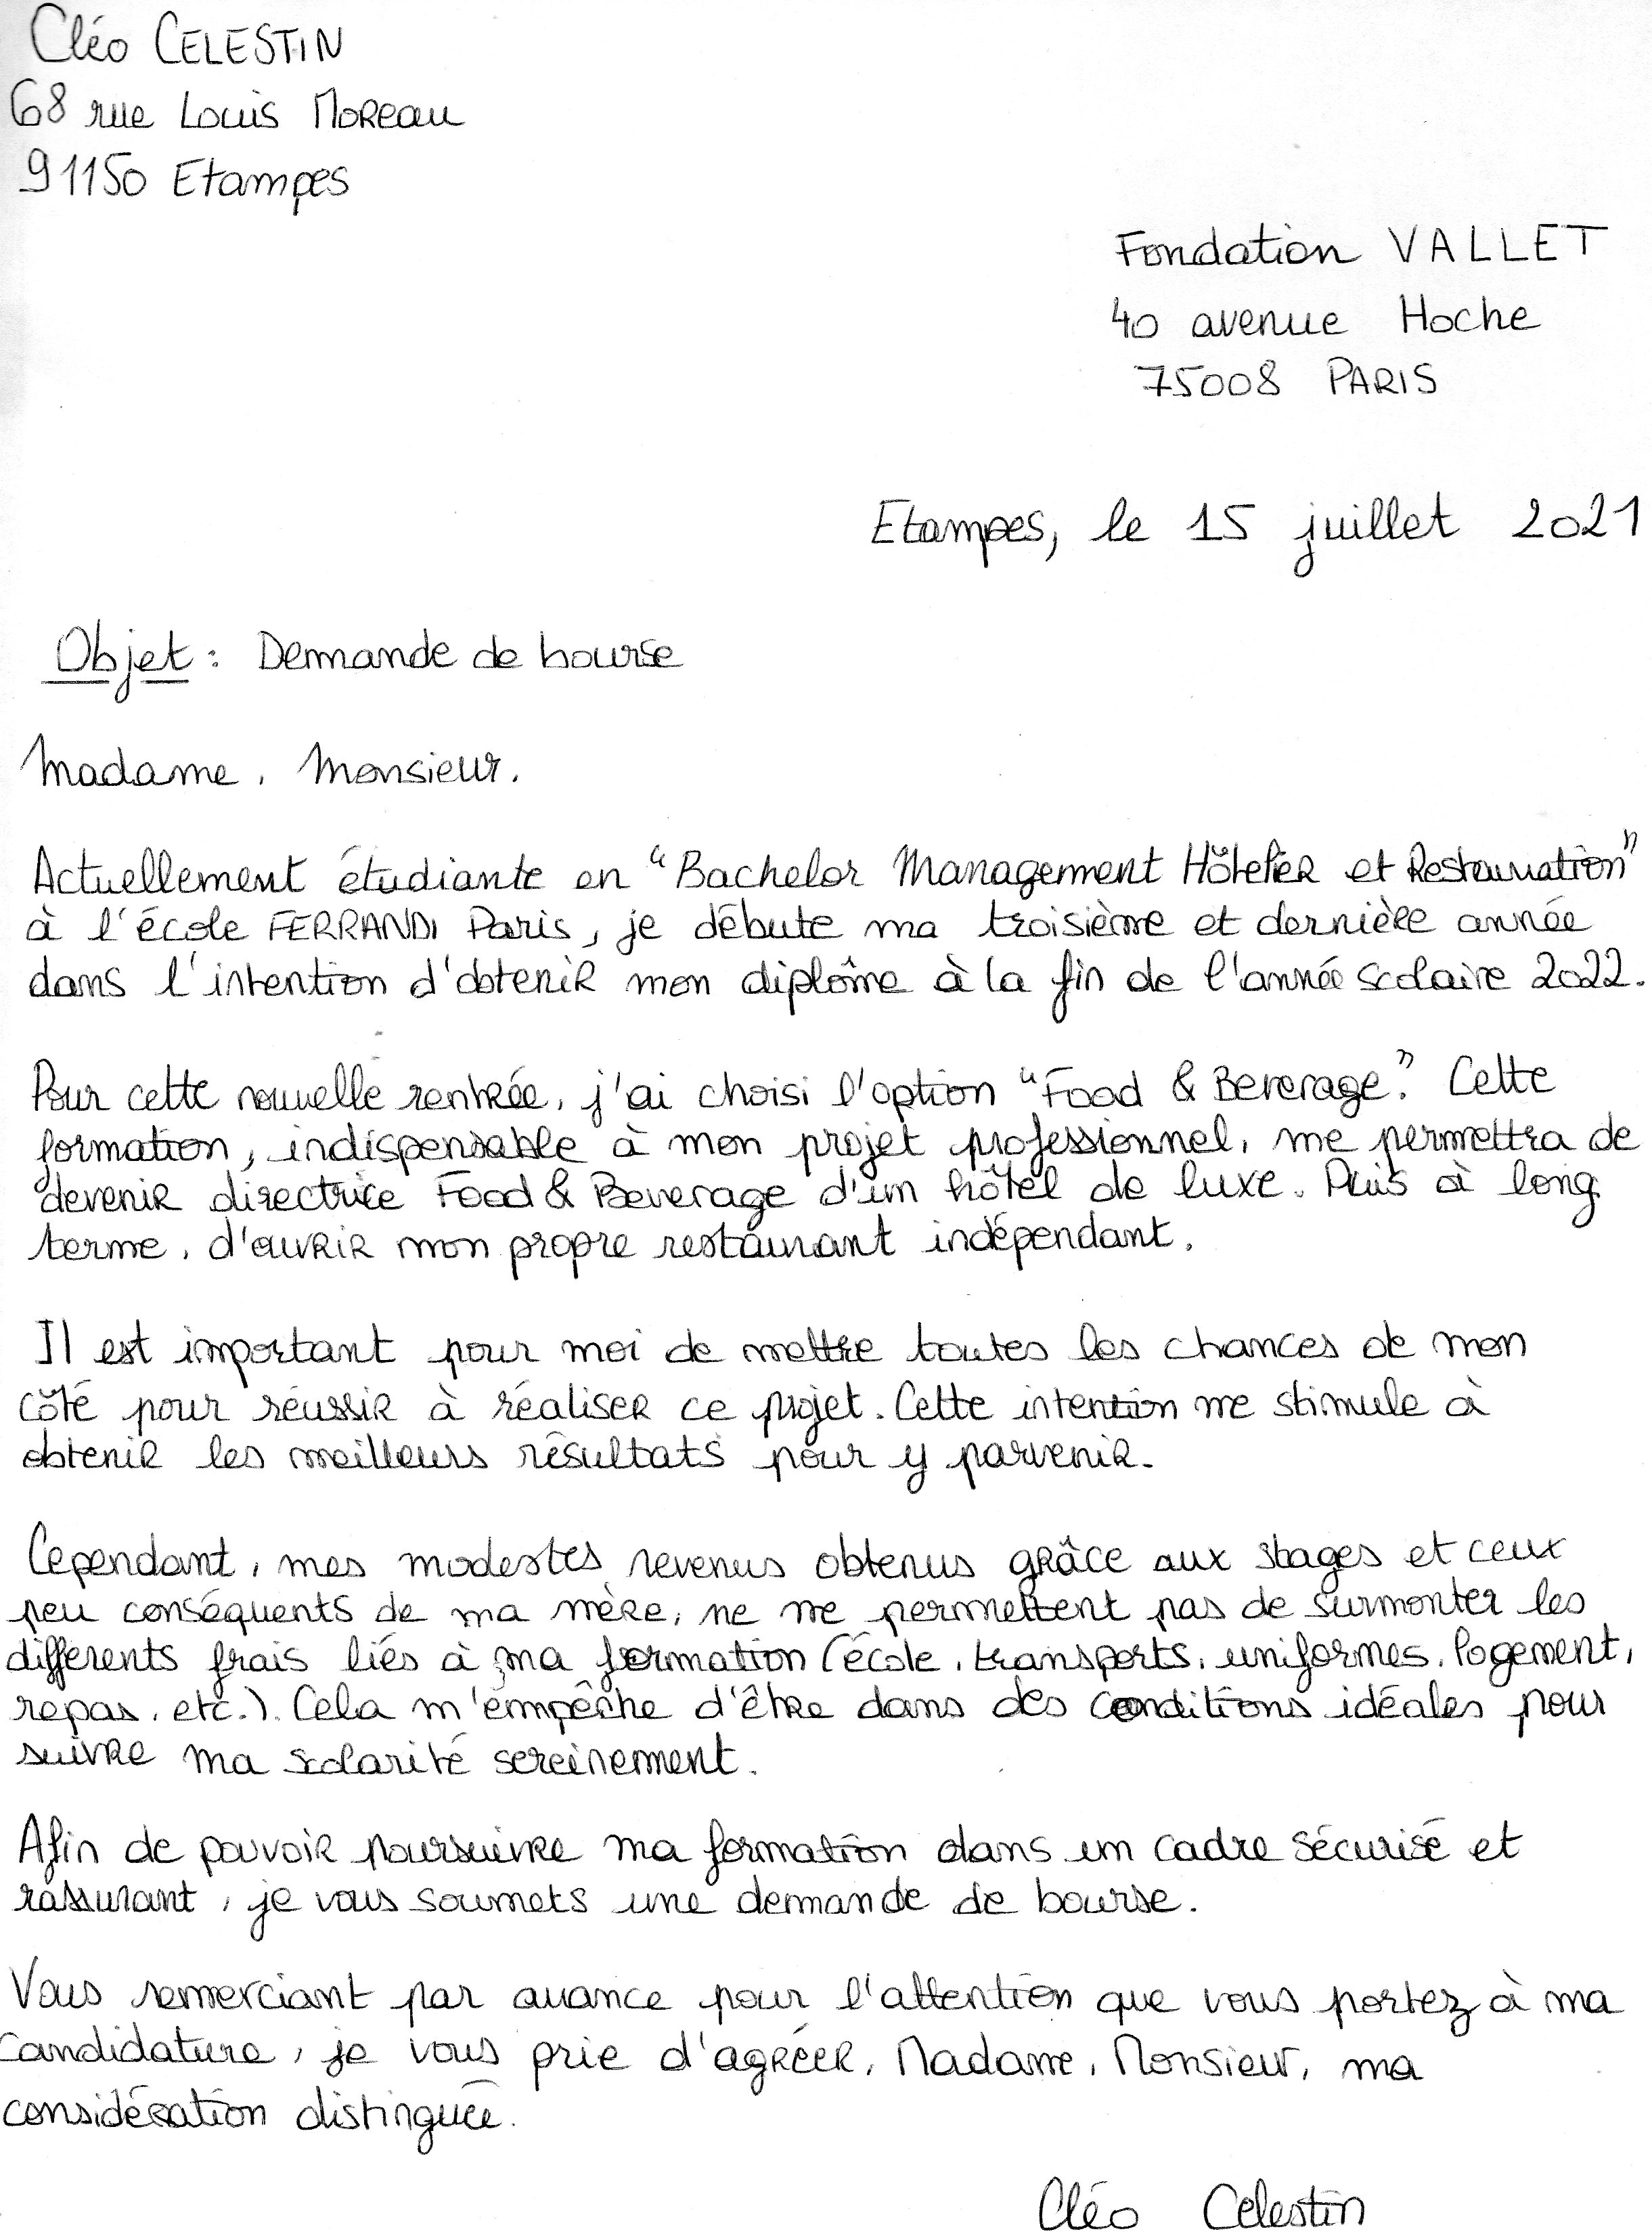 Cléo CELESTIN
68 rue Louis Moreau
91150 Etampes
Fondation VALLET
40 avenue Hoche
75008 PARIS
Etampes, le 15 juillet 2021
Objet : Demande de bourse
Madame, Monsieur,
Actuellement étudiante en "Bachelor Management Hôtelier et Restauration"
à l'école FERRANDI Paris, je débute ma troisième et dernière année
dans l'intention d'obtenir mon diplôme à la fin de l'année scolaire 2022.
Pour cette nouvelle rentrée, j'ai choisi l'option "Food & Beverage". Cette
formation, indispensable à mon projet professionnel, me permettra de
devenir directrice Food & Beverage d'un hôtel de luxe. Puis à long
terme, d'ouvrir mon propre restaurant indépendant.
Il est important pour moi de mettre toutes les chances de mon
côté pour réussir à réaliser ce projet. Cette intention me stimule à
obtenir les meilleurs résultats pour y parvenir.
Cependant, mes modestes revenus obtenus grâce aux stages et ceux
peu conséquents de ma mère, ne me permettent pas de surmonter les
différents frais liés à ma formation (école, transports, uniformes, logement,
repas, etc.). Cela m'empêche d'être dans des conditions idéales pour
suivre ma scolarité sereinement.
Afin de pouvoir poursuivre ma formation dans un cadre sécurisé et
rassurant, je vous soumets une demande de bourse.
Vous remerciant par avance pour l'attention que vous portez à ma
candidature, je vous prie d'agréer, Madame, Monsieur, ma
considération distinguée.
Cléo Celestin